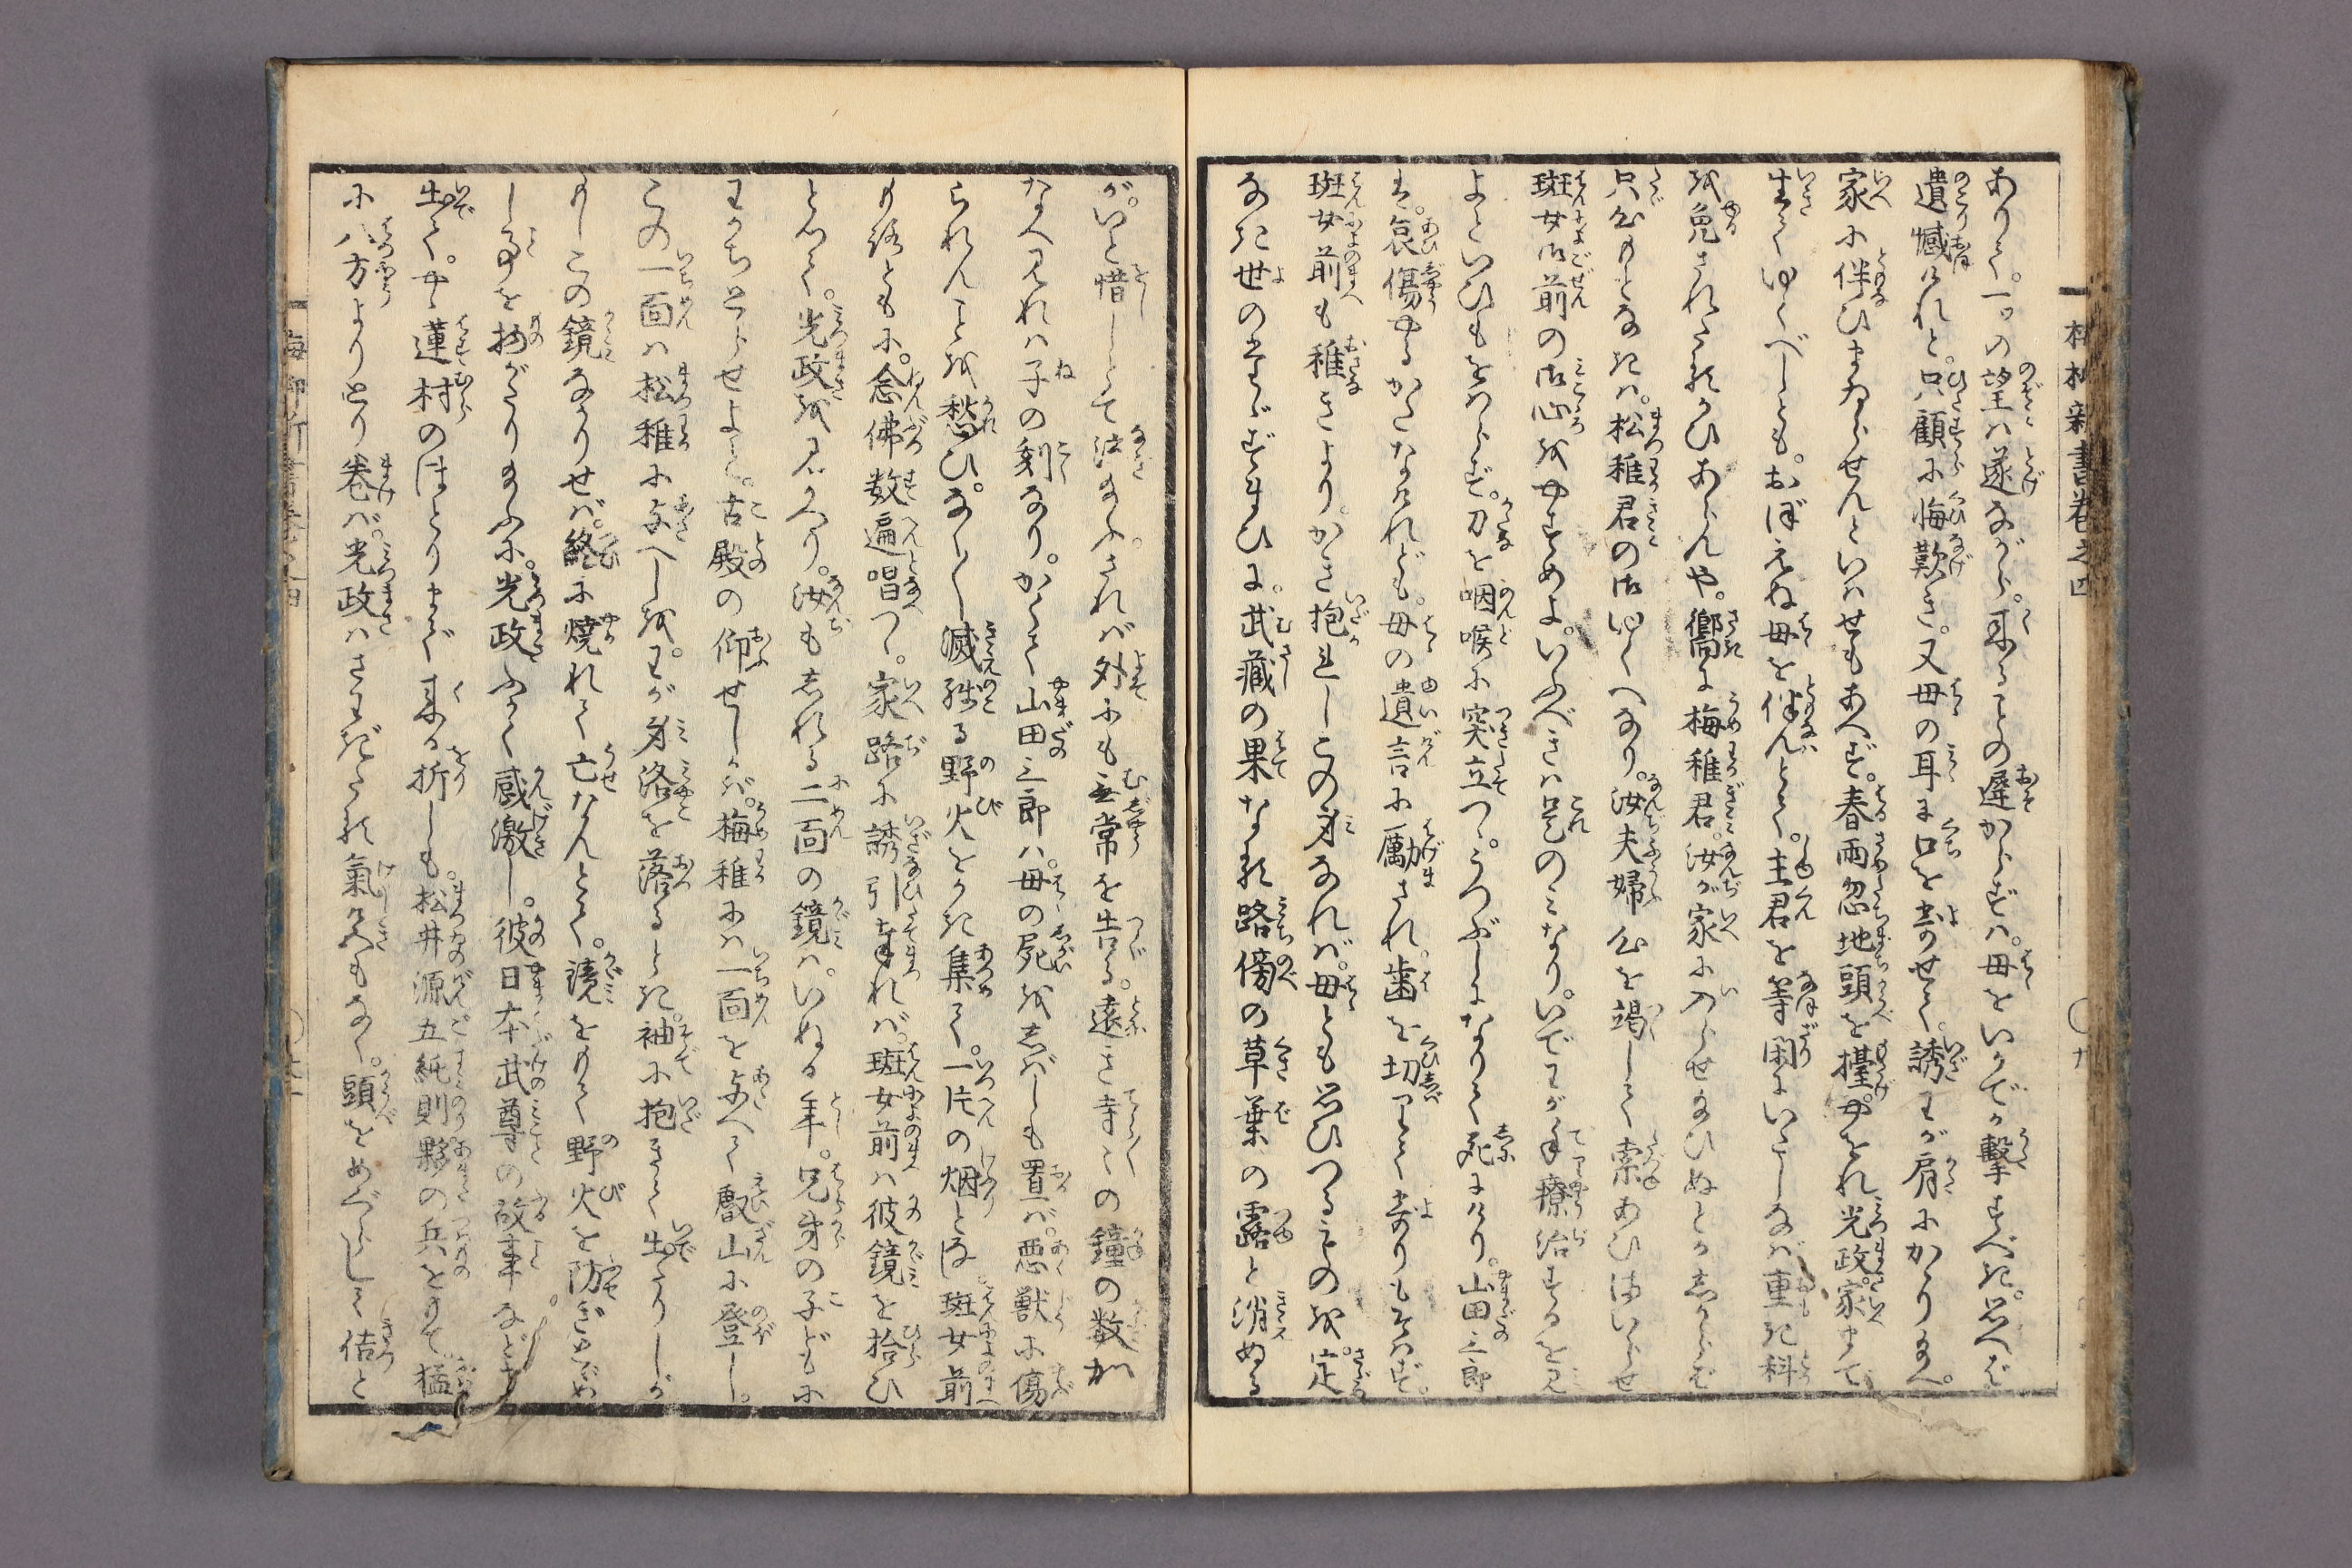 ありて。一つの望は遂ながら。来ることの遅からずは。母をいかでか撃すべき。思へば
遺憾けれど。只顧に悔歎き。又母の耳に口を寄せて。誘わが肩にかゝり給へ。
家に伴ひまゐらせんといはせもあへず。春雨忽地頭を擡。やをれ光政。家まで
生てゆくべしとも。おぼえぬ母を伴んとて。主君を等閑にいたしなば重き科
を免されたるかひあらんや。嚮に梅稚君。汝が家に入らせ給ひぬとか。しからば
只公もとなきは。松稚君の御ゆくへなり。汝夫婦公を竭して索あひまゐらせ
班女御前の御心を安すめよ。いふべきは是のみなり。いでわが手療治するを見
よといひもをはらず。刀を咽喉に突立つゝ。うつぶしになりて死にけり。山田三郎
は。哀傷やるかたなけれども。母の遺言に励まされ。歯を切りて寄りもそはず。
班女前も稚きより。かき抱れしこの身なれば。母とも思ひつるものを。定
なき世の習ひに。武蔵の果なる路傍の草葉の露と消ぬる
が。いと惜しとて泣給ふ。されば外にも無常を告る。遠き寺々の鐘の数か
なへ見れば子の刻なり。かくて山田三郎は。母の屍をしばしも置ば。悪獣に傷
られんことを愁ひ。なく〳〵滅残る野火をかき集て。一片の烟となし。班女前
も経ともに。念佛数遍唱つゝ。家路に誘引奉れば。班女前は彼鏡を拾ひ
とつて。光政を見かへり。汝もしれる二面の鏡は。いぬる年。兄弟の子どもに
わかちとらせよと。古殿の仰せしかば。梅稚には一面を与へて叡山に登し。
この一面は松稚に与へしを。わが身洛を落るとき。袖に抱きて出たりしが
もしこの鏡なかりせば。終に焼れて亡なんとて。鏡をもて野火を防ぎとゞめ
し事を物がたり給ふに。光政ふかく感激し。彼日本武尊の故事など申
出て。やゝ蓮村のほとりまで来る折しも。松井源五純則夥の兵をもて。猛
に八方よりとり巻ば。光政はさわぎたる氣色もなく。頭をめぐらして佶と